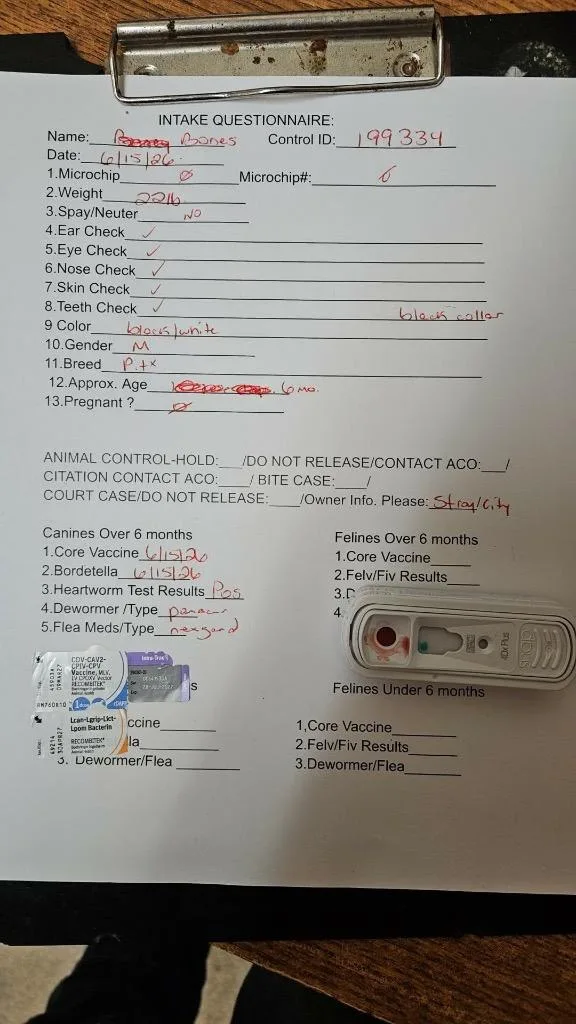 INTAKE QUESTIONNAIRE:
Name: Bones Control ID: 199334
Date: 6/15/26
1.Microchip Ø Microchip#: Ø
2.Weight 22lb
3.Spay/Neuter NO
4.Ear Check ✓
5.Eye Check ✓
6.Nose Check ✓
7.Skin Check ✓
8.Teeth Check ✓ black collar
9 Color black/white
10.Gender M
11.Breed P.tx
12.Approx. Age 6 mo.
13.Pregnant ? Ø
ANIMAL CONTROL-HOLD:___/DO NOT RELEASE/CONTACT ACO:___/
CITATION CONTACT ACO:____/ BITE CASE:____/
COURT CASE/DO NOT RELEASE:____/Owner Info. Please: Stray/City
Canines Over 6 months
1.Core Vaccine 6/15/26
2.Bordetella 6/15/26
3.Heartworm Test Results Pos
4.Dewormer /Type panacur
5.Flea Meds/Type nexgard
Felines Over 6 months
1.Core Vaccine
2.Felv/Fiv Results
3.D
4.
4Dx Plus
CDV-CAV2-
CPIV-CPV
Vaccine, MLV,
LV CPCXV Vector
RECOMBITEK®
45903A
09MAR27
1 dose
Intra-Trac
Lcan-Lgrip-Lict-
Lpom Bacterin
RECOMBITEK®
49214
s
ccine
la
3. Dewormer/Flea
Felines Under 6 months
1,Core Vaccine
2.Felv/Fiv Results
3.Dewormer/Flea